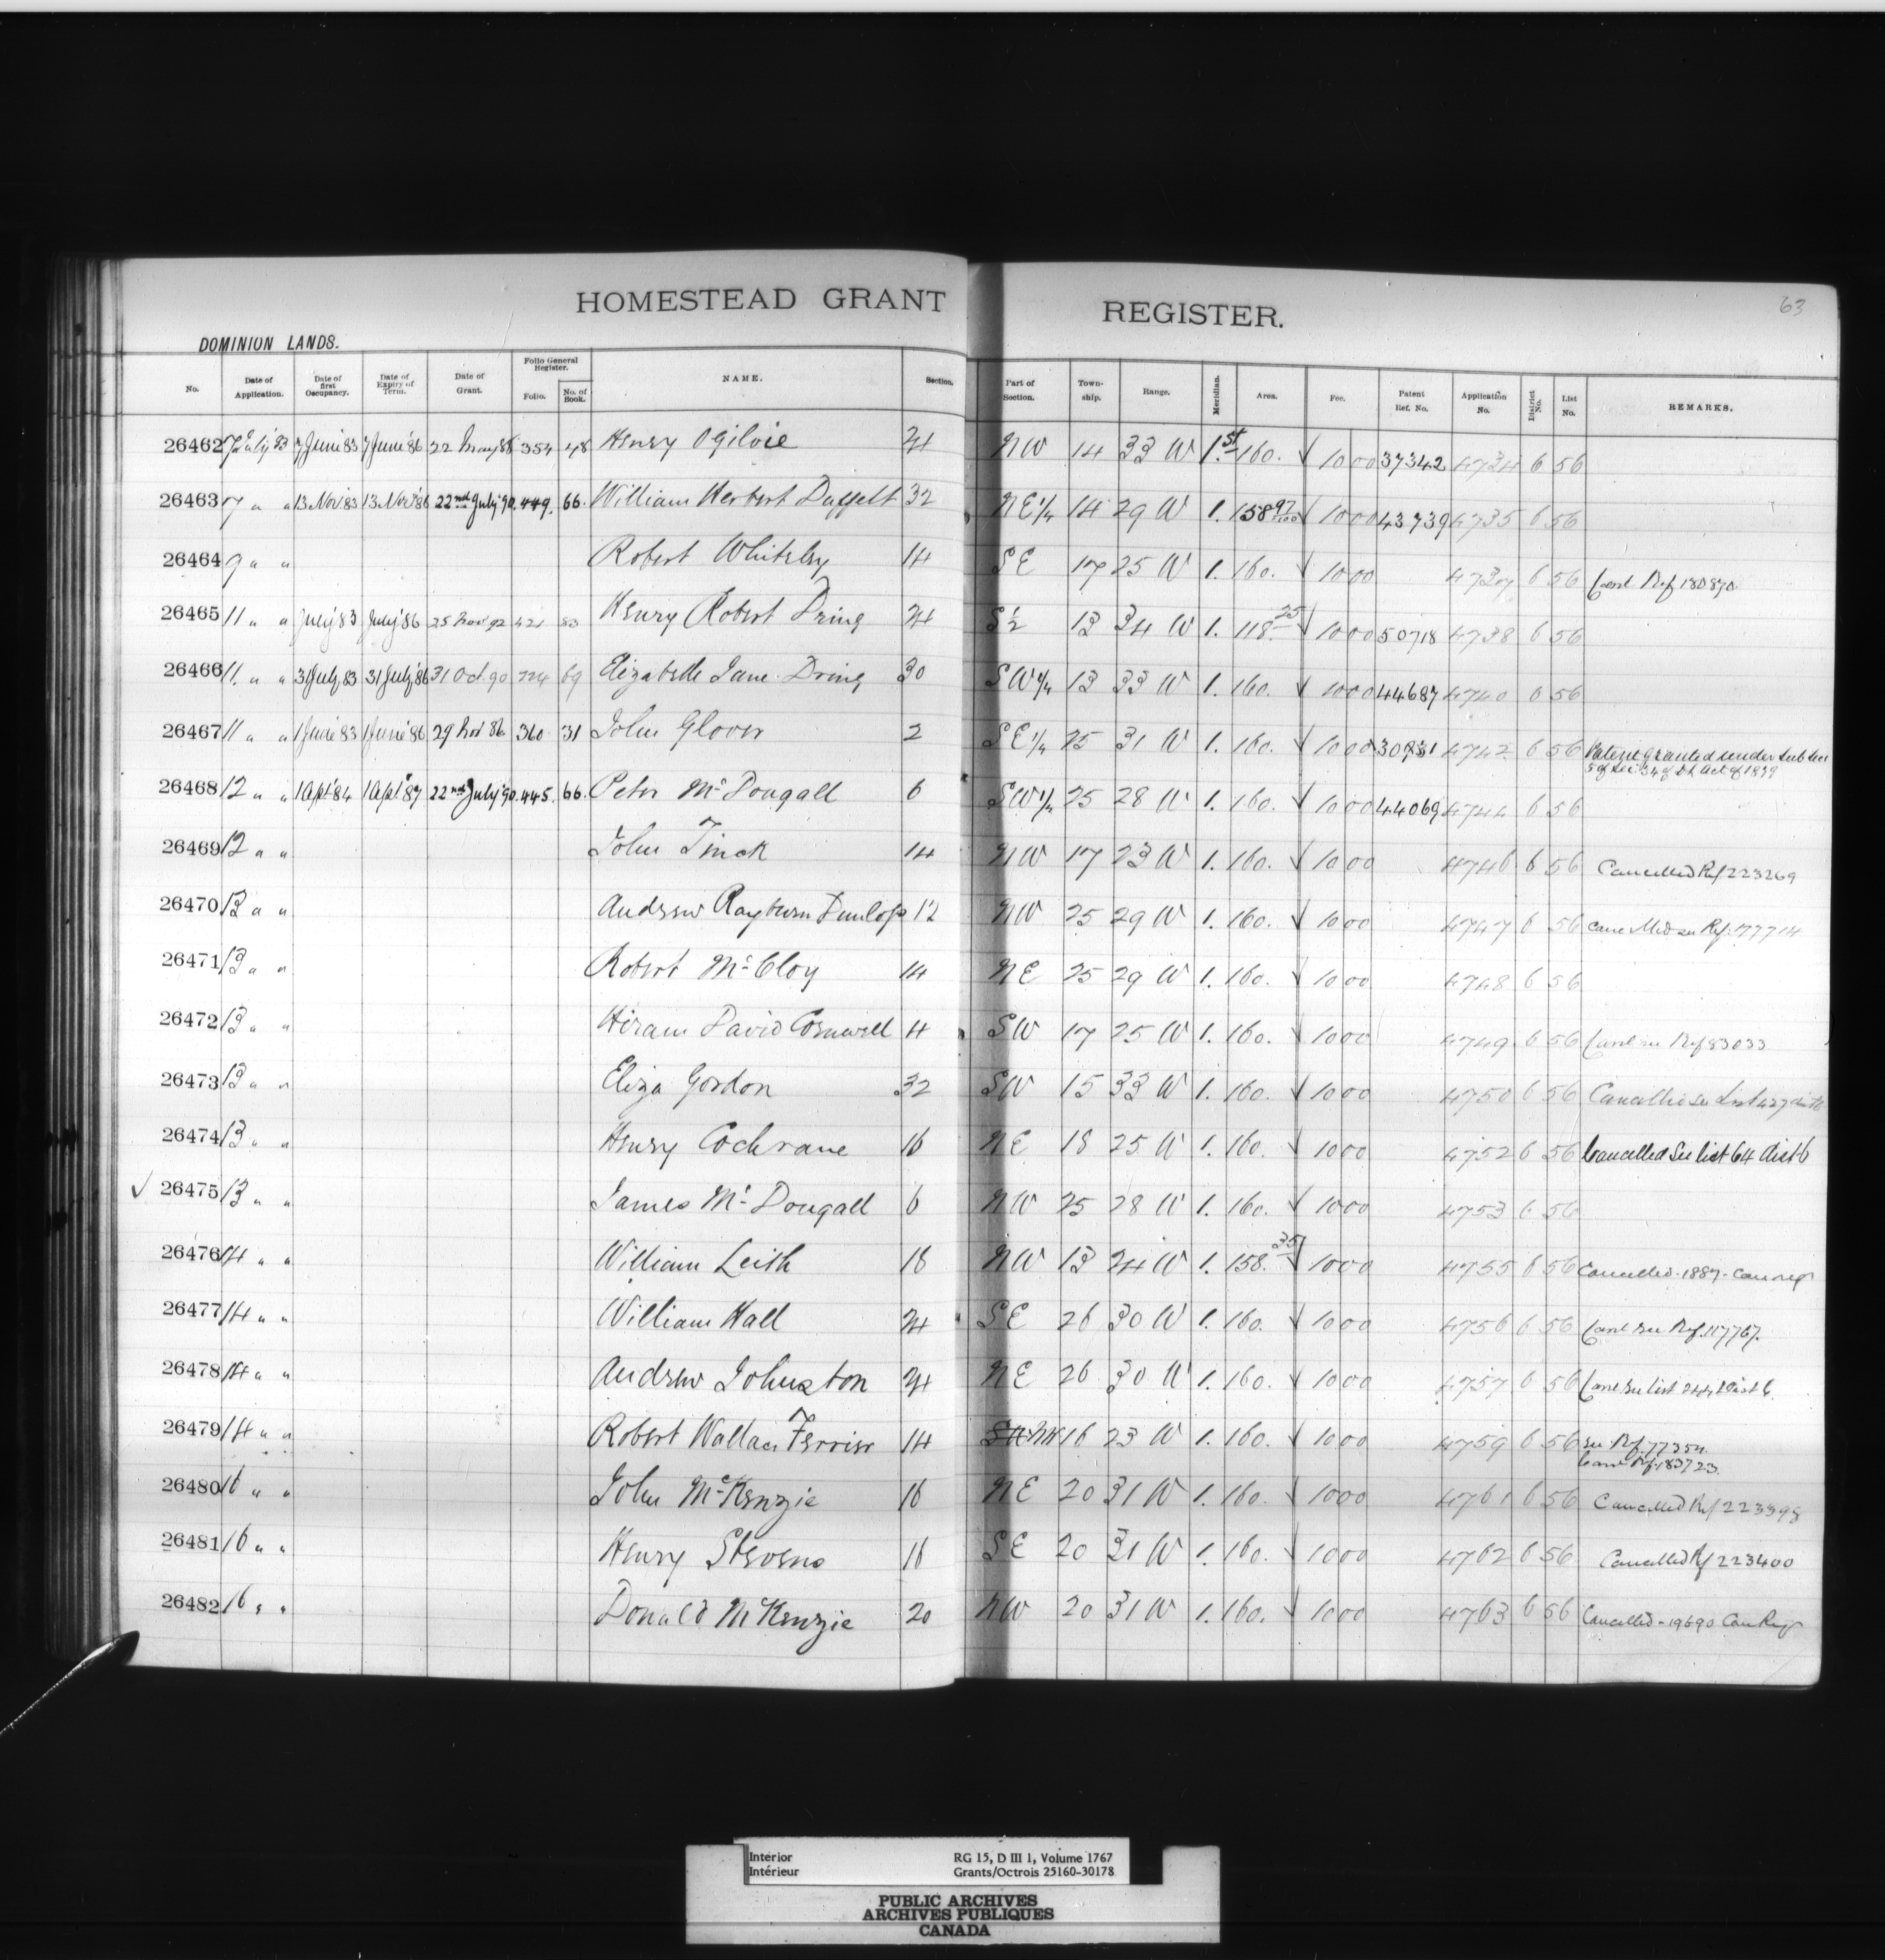 63
HOMESTEAD GRANT REGISTER.
DOMINION LANDS.
No. Date of Application. Date of first Occupancy. Date of Expiry of Term. Date of Grant. Folio General Register. Folio. No. of Book. NAME. Section. Part of Section. Town-ship. Range. Meridian. Area. Fee. Patent Ref. No. Application No. District No. List No. REMARKS.
26462 7 July 83 7 June 83 7 June '86 22 May 88 354 48 Henry Ogilvie 24 NW 14 33 W 1st 160. √ 10 00 37342 4734 6 56
26463 7 " " 13 Nov 83 13 Nov '86 22nd July '90. 449. 66. William Herbert 32 NE 1/4 14 29 W 1. 158 97/100 √ 10 00 43739 4735 6 56
26464 9 " " Robert Whiteley 14 SE 17 25 W 1. 160. √ 10 00 4737 6 56 Canl Ref 180870
26465 11 " " July 83 July '86 25 Nov 92 421 83 Henry Robert Dring 24 S ½ 13 34 W 1. 118. 25 √ 10 00 50718 4738 6 56
26466 11. " " 31 July 83 31 July '86 31 Oct. 90 224 69 Elizabeth Jane Dring 30 SW 1/4 13 33 W 1. 160. √ 10 00 44687 4740 6 56
26467 11 " " 1 June 83 1 June '86 29 Nov 86 360 31 John Glover 2 SE 1/4 25 31 W 1. 160. √ 10 00 4742 6 56 Patent granted under Sub Sec
5 of Sec 34 of D.L. Act of 1879
26468 12 " " 1 Apl '84 1 Apl '87 22nd July '90. 445. 66. Peter McDougall 6 SW 1/4 25 28 W 1. 160. √ 10 00 44069 4744 6 56
26469 12 " " John Tinck 14 NW 17 23 W 1. 160. √ 10 00 4746 6 56 Cancelled Ref 223269
26470 13 " " Andrew Rayburn Dunlop 12 NW 25 29 W 1. 160. √ 10 00 4747 6 56 Cancelled see Ref. 177714
26471 13 " " Robert McCloy 14 NE 25 29 W 1. 160. √ 10 00 4748 6 56
26472 13 " " Hiram David Cornwell 4 SW 17 25 W 1. 160. √ 10 00 4749 6 56 Canl see Ref 83033
26473 13 " " Eliza Gordon 32 SW 15 33 W 1. 160. √ 10 00 4750 6 56 Cancelled See List 427
26474 13 " " Henry Cochrane 16 NE 18 25 W 1. 160. √ 10 00 4752 6 56 Cancelled See list 64 dist 6
√ 26475 13 " " James McDougall 6 NW 25 28 W 1. 160. √ 10 00 4753 6 56
26476 14 " " William Leith 18 NW 13 24 W 1. 158. 35 √ 10 00 4755 6 56 Cancelled - 1887 - Can reg
26477 14 " " William Hall 24 SE 26 30 W 1. 160. √ 10 00 4756 6 56 Canl see Ref. 117767.
26478 14 " " Andrew Johnston 24 NE 26 30 W 1. 160. √ 10 00 4757 6 56 Canl see list 244 Dist 6.
26479 14 " " Robert Wallace Ferrier 14 NW 16 23 W 1. 160. √ 10 00 4759 6 56 see Ref. 77354
Canl Ref. 183723
26480 16 " " John McKenzie 16 NE 20 31 W 1. 160. √ 10 00 4761 6 56 Cancelled Ref 223398
26481 16 " " Henry Stevens 16 SE 20 31 W 1. 160. √ 10 00 4762 6 56 Cancelled Rf 223400
26482 16 " " Donald McKenzie 20 NW 20 31 W 1. 160. √ 10 00 4763 6 56 Cancelled - 19690 Can Reg
Interior RG 15, D III 1, Volume 1767
Intérieur Grants/Octrois 25160-30178
PUBLIC ARCHIVES
ARCHIVES PUBLIQUES
CANADA